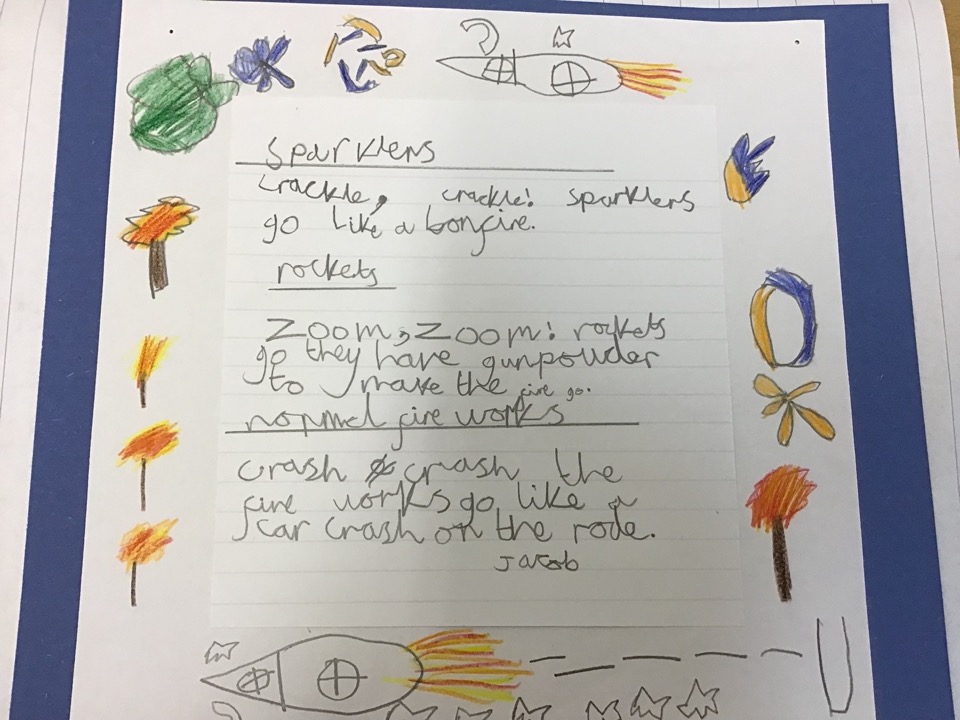 Sparklers
crackle, crackle! sparklers
go like a bonfire.
rockets
Zoom, Zoom! rockets
go they have gunpouder
to make the fire go.
normel fire works
crash crash the
fire works go like a
car crash on the rode.
Jacob